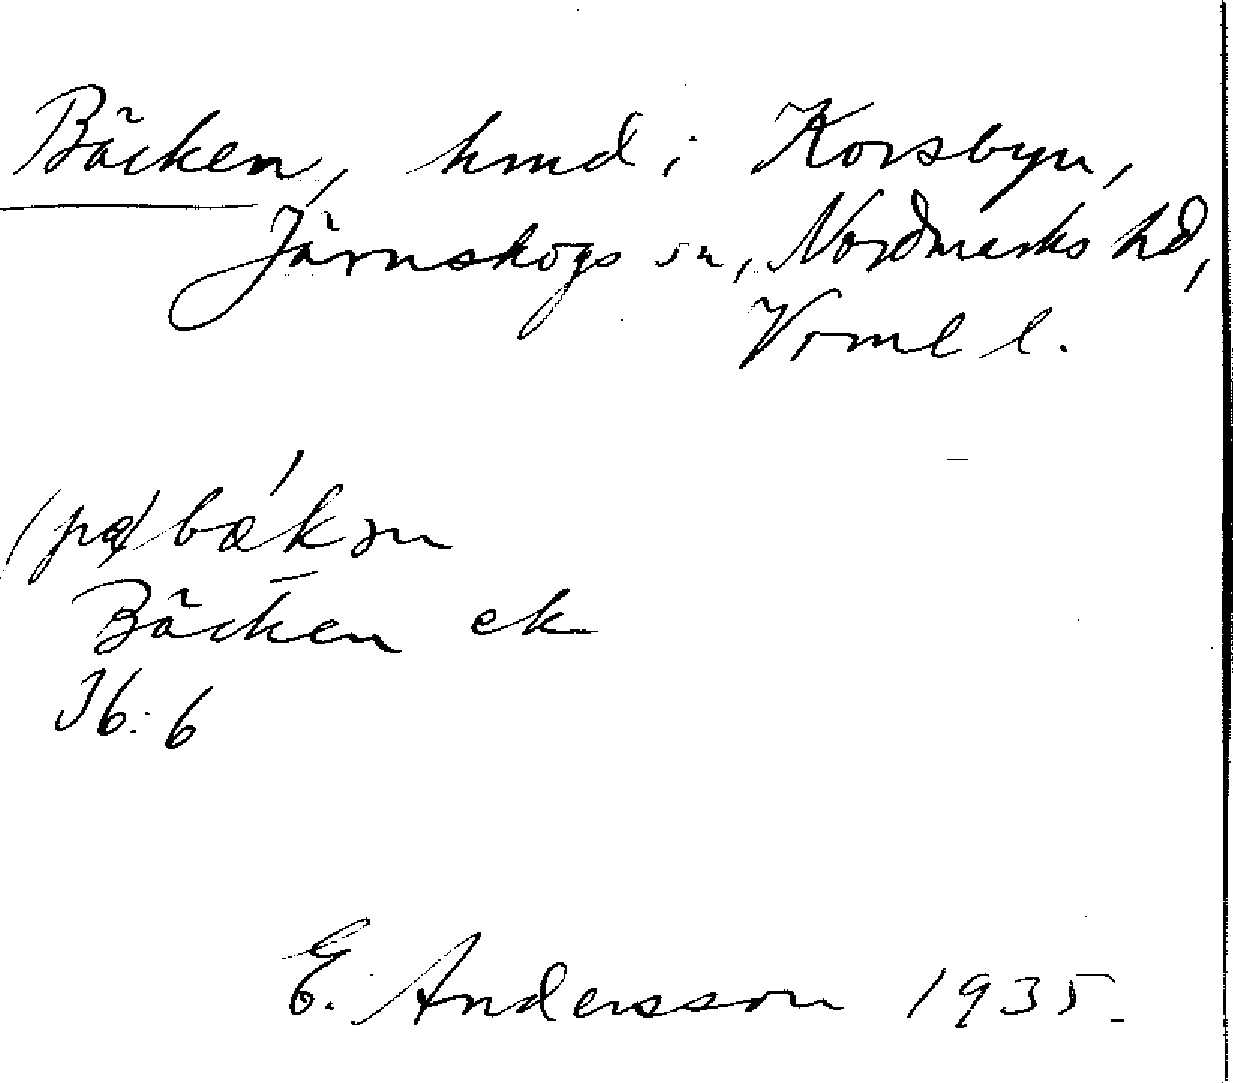 Bäcken, hmd i Korsbyn,
Järnskogs sn, Nordmarks hd,
Vrml l.
(pa) bækən
Bäcken ek
J6:6
E. Andersson 1935.